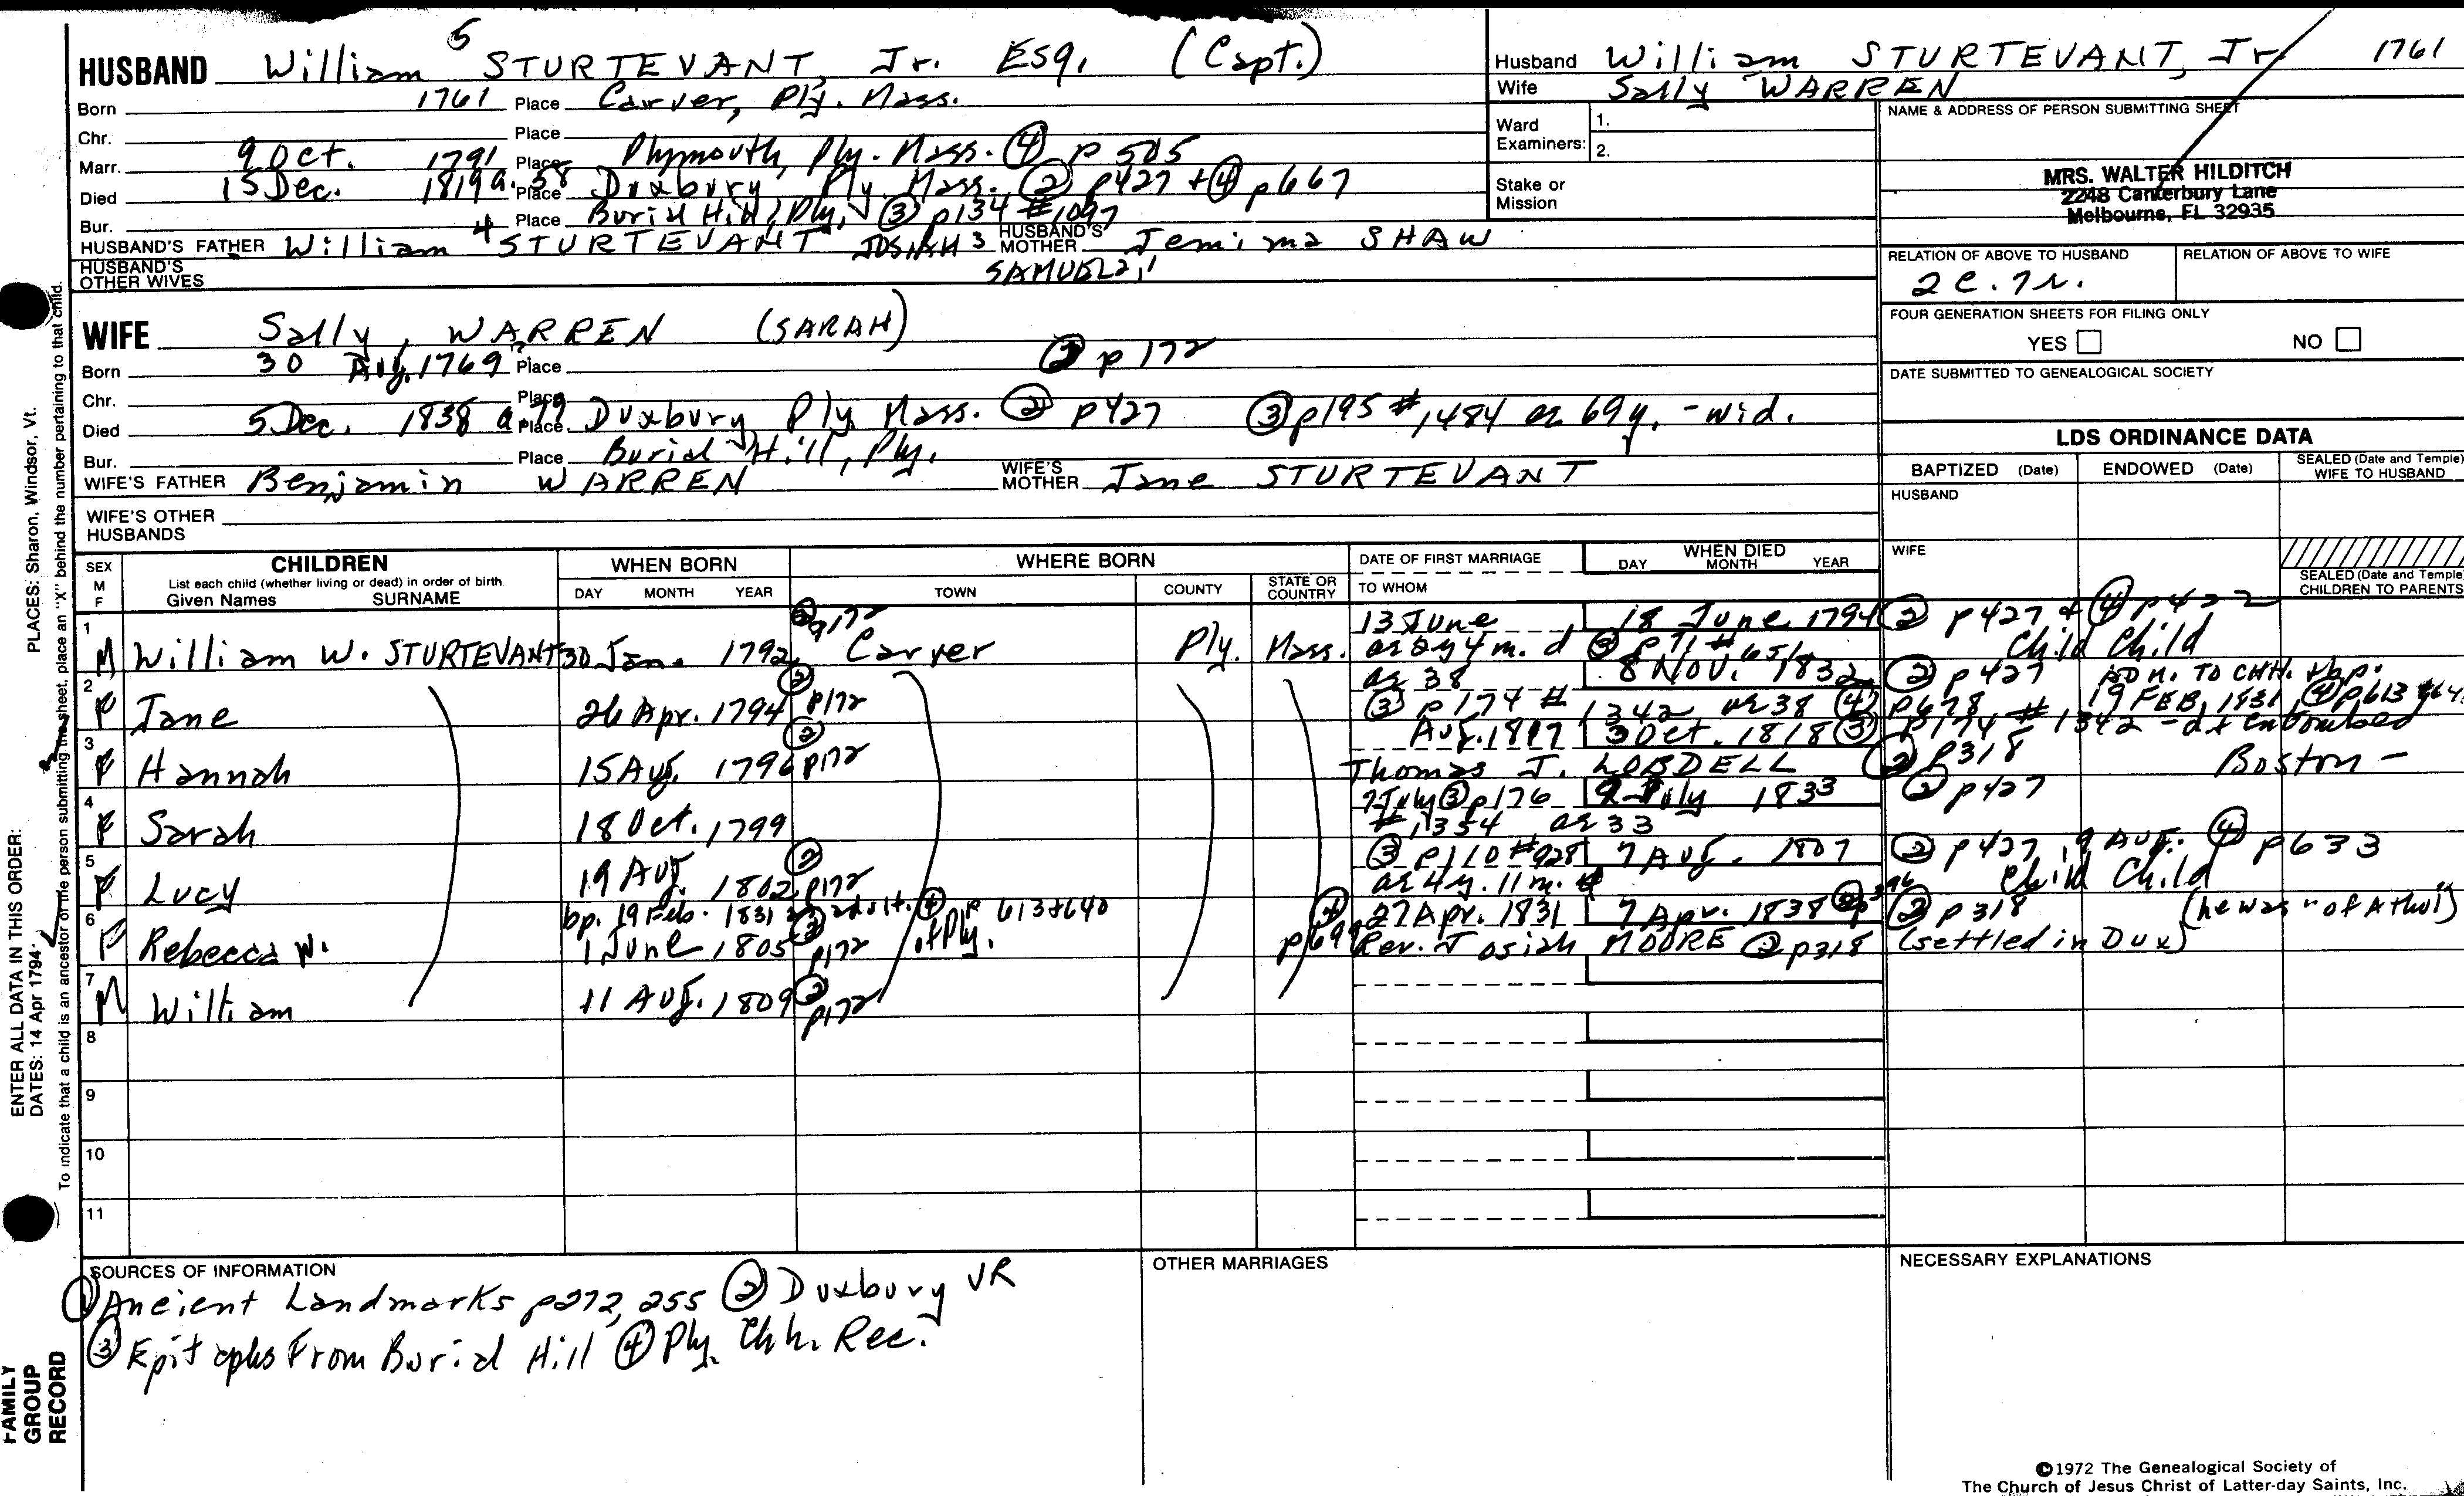 HUSBAND William 5 STURTEVANT, Jr. Esq. (Capt.)
Born 1761 Place Carver, Ply. Mass.
Chr. Place
Marr. 9 Oct. 1791 Place Plymouth, Ply. Mass. ④ p 505
Died 15 Dec. 1819 a. 58 Place Duxbury Ply. Mass. ② p427 + ④ p667
Bur. Place Burial Hill, Ply. ③ p134 #1097
HUSBAND'S FATHER William 4 STURTEVANT JOSIAH 3 HUSBAND'S MOTHER Jemima SHAW
HUSBAND'S OTHER WIVES SAMUEL 2, 1
Husband William STURTEVANT, Jr 1761
Wife Sally WARREN
Ward Examiners: 1.
2.
Stake or Mission
NAME & ADDRESS OF PERSON SUBMITTING SHEET
MRS. WALTER HILDITCH
2248 Canterbury Lane
Melbourne, FL 32935
RELATION OF ABOVE TO HUSBAND RELATION OF ABOVE TO WIFE
2c. 7r.
FOUR GENERATION SHEETS FOR FILING ONLY
YES NO
DATE SUBMITTED TO GENEALOGICAL SOCIETY
WIFE Sally, WARREN (SARAH)
Born 30 Aug. 1769? Place ② p 172
Chr. Place
Died 5 Dec. 1838 Place Duxbury Ply. Mass. ② p427 ③ p195 #1484 ae 69y. - wid.
Bur. Place Burial Hill, Ply.
WIFE'S FATHER Benjamin WARREN WIFE'S MOTHER Jane STURTEVANT
WIFE'S OTHER HUSBANDS
LDS ORDINANCE DATA
BAPTIZED (Date) ENDOWED (Date) SEALED (Date and Temple) WIFE TO HUSBAND
HUSBAND
WIFE
SEALED (Date and Temple) CHILDREN TO PARENTS
SEX M F CHILDREN List each child (whether living or dead) in order of birth Given Names SURNAME
WHEN BORN DAY MONTH YEAR
WHERE BORN TOWN COUNTY STATE OR COUNTRY
DATE OF FIRST MARRIAGE TO WHOM
WHEN DIED DAY MONTH YEAR
② p172 13 June 18 June 1794 ② p427 + ④ p422
1 M William W. STURTEVANT 30 Jan. 1792 Carver Ply. Mass. ae 2y 4m. d ③ p 71 # 651 Child Child
ae 38 8 Nov. 1832 ② p427 TO CHH. + bp.
2 F Jane 26 Apr. 1794 ② p172 ③ p174 # 1342 ae 38 ④ p678 19 FEB, 1831 ④ p613
Aug. 1817 3 Oct. 1818 ③ p174 # 1342 - d + entombed
3 F Hannah 15 Aug. 1796 ② p172 Thomas J. LOBDELL ② p318 Boston -
7 July ③ p176 9 July 1833 ② p427
4 F Sarah 18 Oct. 1799 #1354 ae 33
③ p110 #928 7 Aug. 1807 ② p427, 9 Aug. ④ p633
5 F Lucy 19 Aug. 1802 ② p172 ae 4y. 11m. Child Child
bp. 19 Feb. 1831 adult. ④ p 613+640 27 Apr. 1831 7 Apr. 1838 ② p318 (he was "of Athol")
6 F Rebecca W. 1 June 1805 ② p172 of Ply. ④ p699 Rev. Josiah MOORE ② p318 (settled in Dux)
7 M William 11 Aug. 1809 ② p172
8
9
10
11
SOURCES OF INFORMATION
① Ancient Landmarks p272, 255 ② Duxbury VR
③ Epitaphs From Burial Hill ④ Ply. Chh. Rec.
OTHER MARRIAGES
NECESSARY EXPLANATIONS
©1972 The Genealogical Society of
The Church of Jesus Christ of Latter-day Saints, Inc.
PLACES: Sharon, Windsor, Vt.
ENTER ALL DATA IN THIS ORDER:
DATES: 14 Apr 1794
To indicate that a child is an ancestor of the person submitting the sheet, place an "X" behind the number pertaining to that child.
FAMILY
GROUP
RECORD